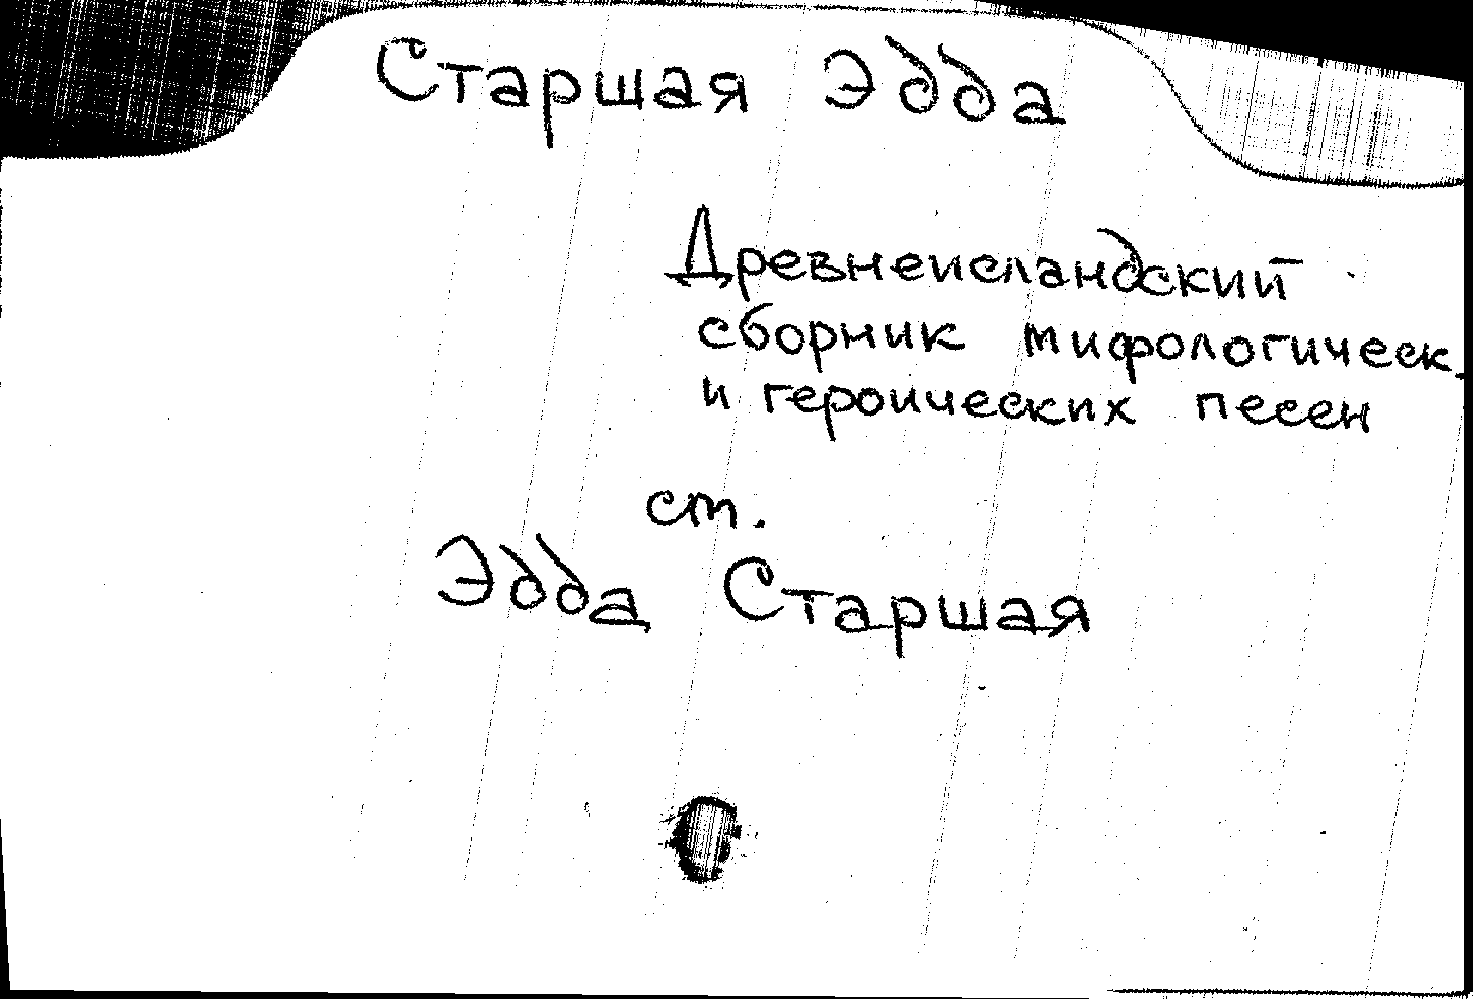 Старшая Эдда
Древнеисландский
сборник мифологическ.
и героических песен
ст.
Эдда Старшая